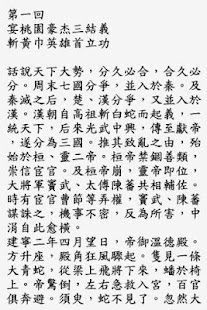 第一回
宴桃園豪杰三結義
斬黃巾英雄首立功
話說天下大勢，分久必合，合久必
分。周末七國分爭，并入於秦。及
秦滅之后，楚、漢分爭，又并入於
漢。漢朝自高祖斬白蛇而起義，一
統天下，后來光武中興，傳至獻帝
，遂分為三國。推其致亂之由，殆
始於桓、靈二帝。桓帝禁錮善類，
崇信宦官。及桓帝崩，靈帝即位，
大將軍竇武、太傅陳蕃共相輔佐。
時有宦官曹節等弄權，竇武、陳蕃
謀誅之，機事不密，反為所害，中
涓自此愈橫。
建寧二年四月望日，帝御溫德殿。
方升座，殿角狂風驟起。只見一條
大青蛇，從梁上飛將下來，蟠於椅
上。帝驚倒，左右急救入宮，百官
俱奔避。須臾，蛇不見了。忽然大